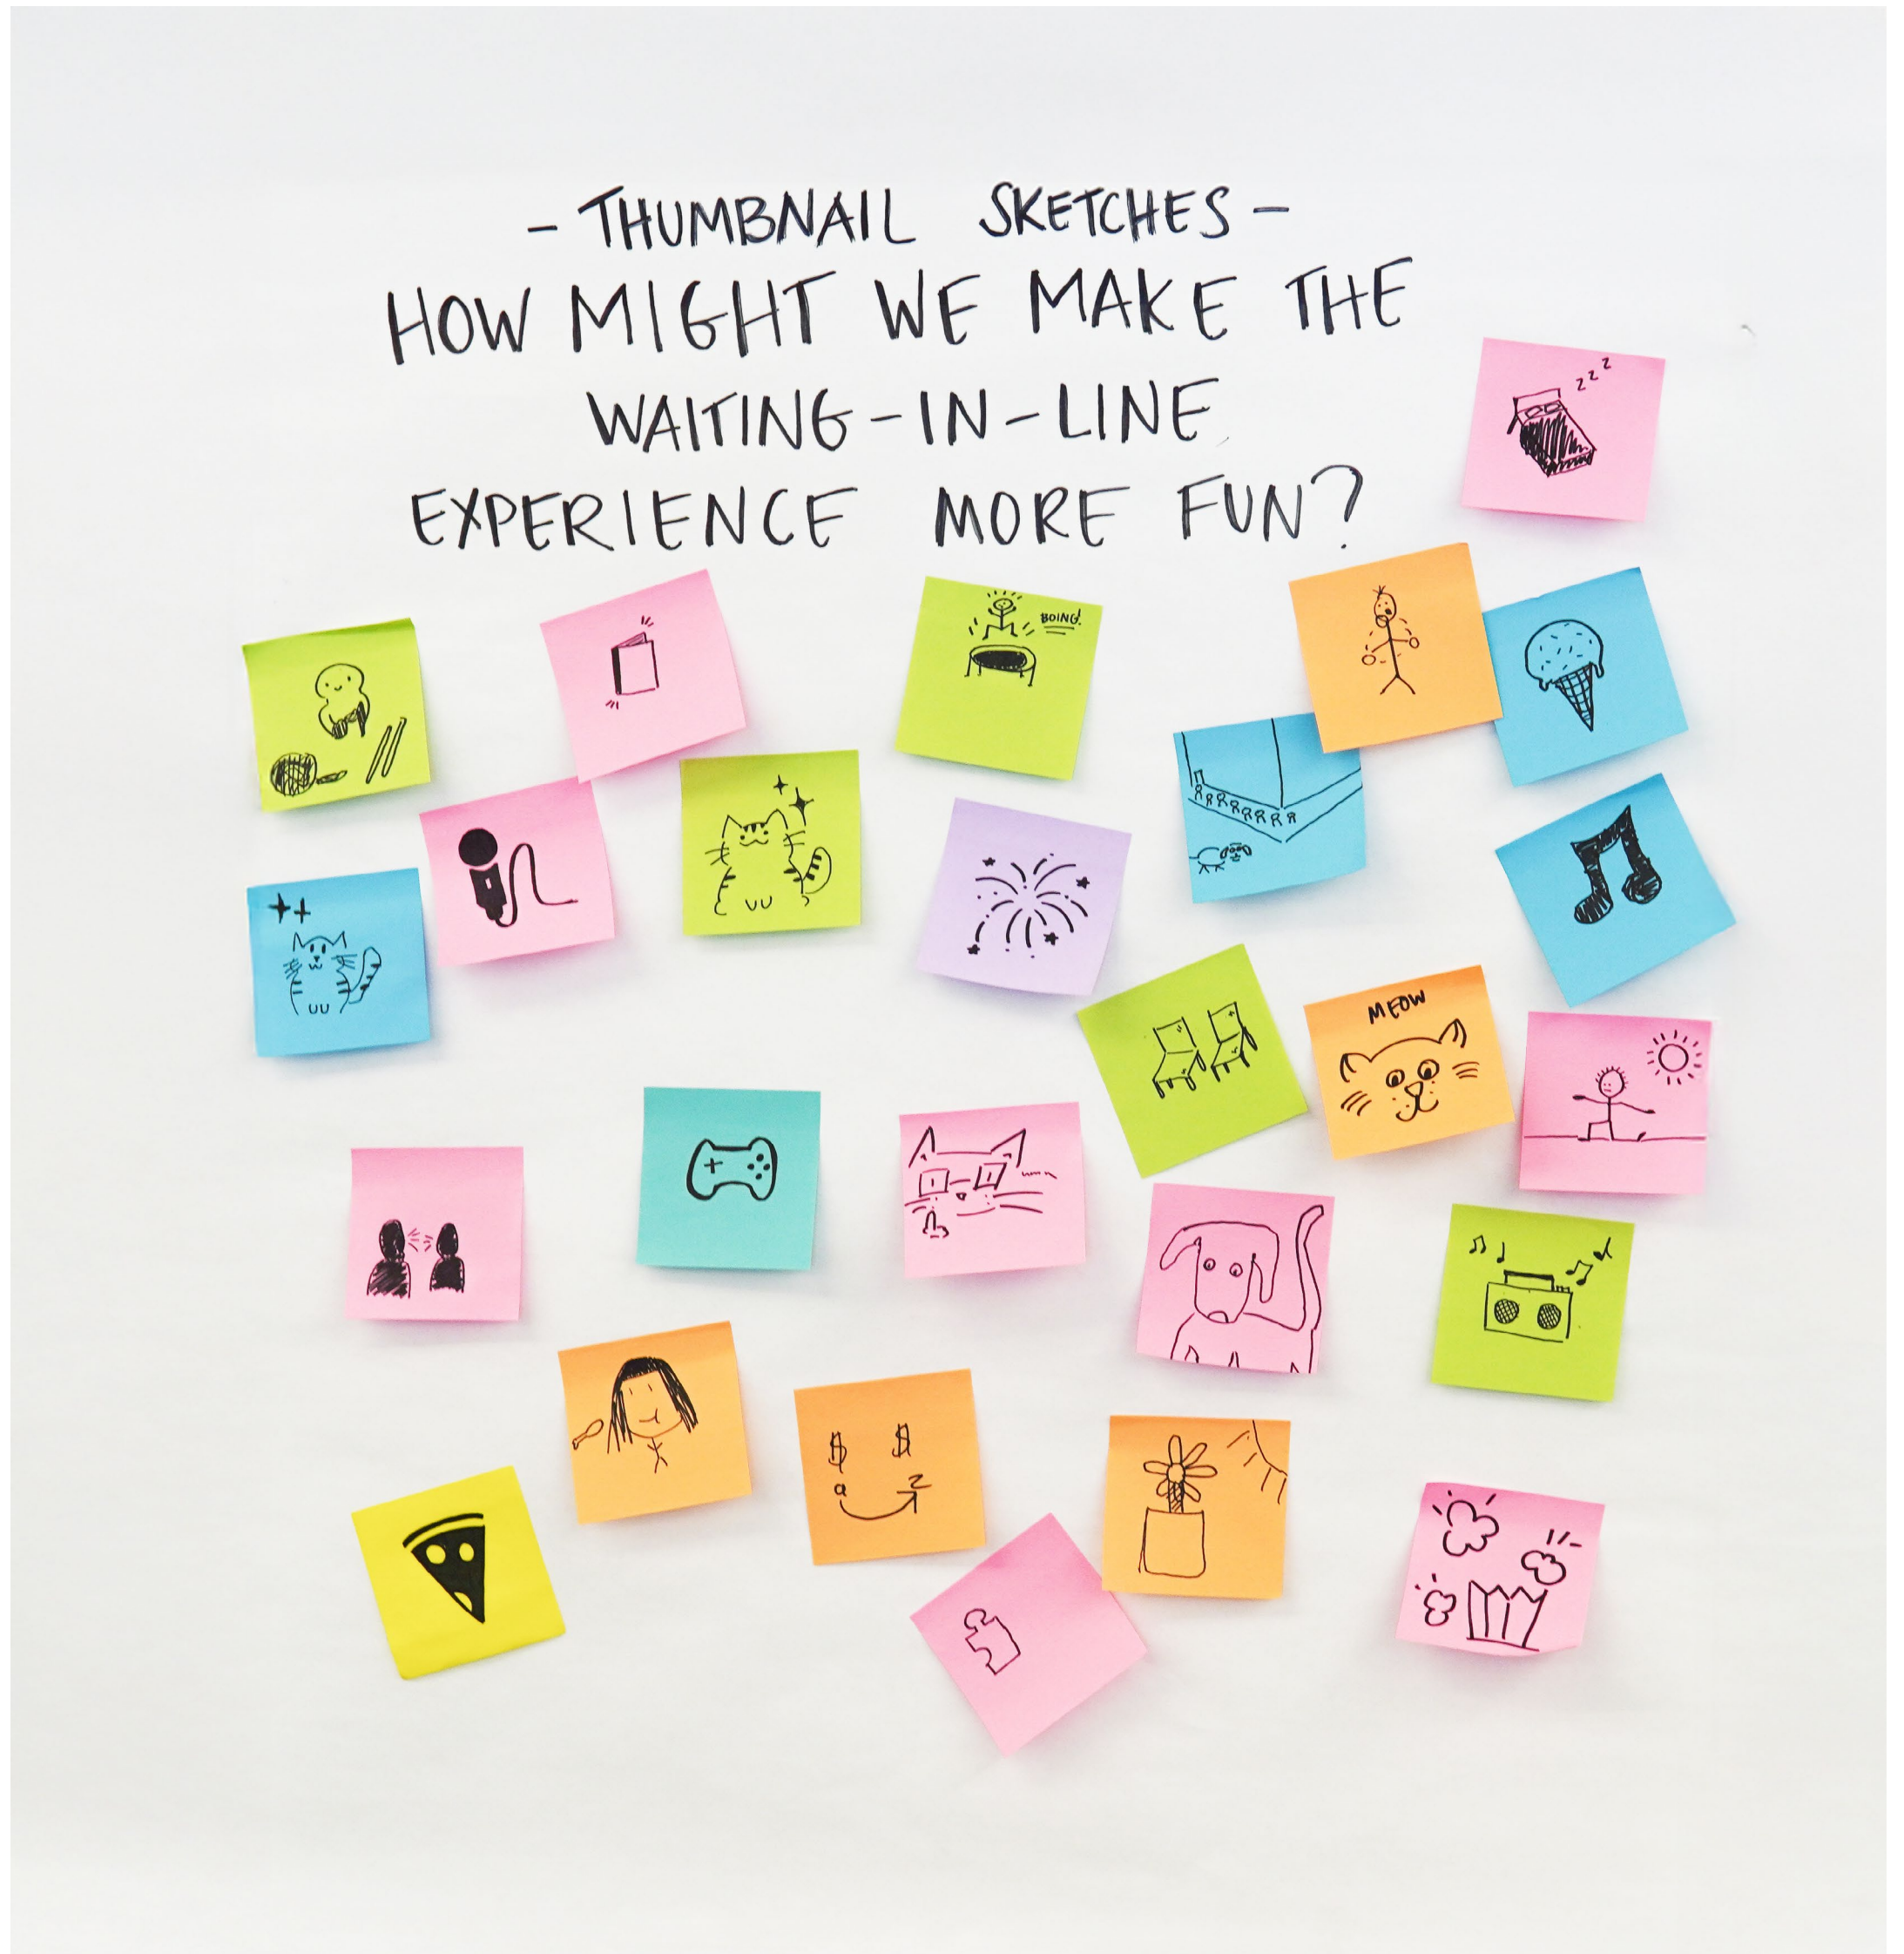 - THUMBNAIL SKETCHES -
HOW MIGHT WE MAKE THE
WAITING-IN-LINE
EXPERIENCE MORE FUN?
z z z
BOING!
MEOW
$ $
a z